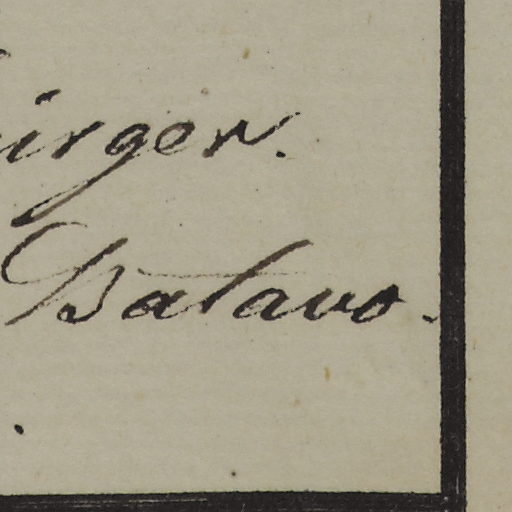 irger.
Batavo.